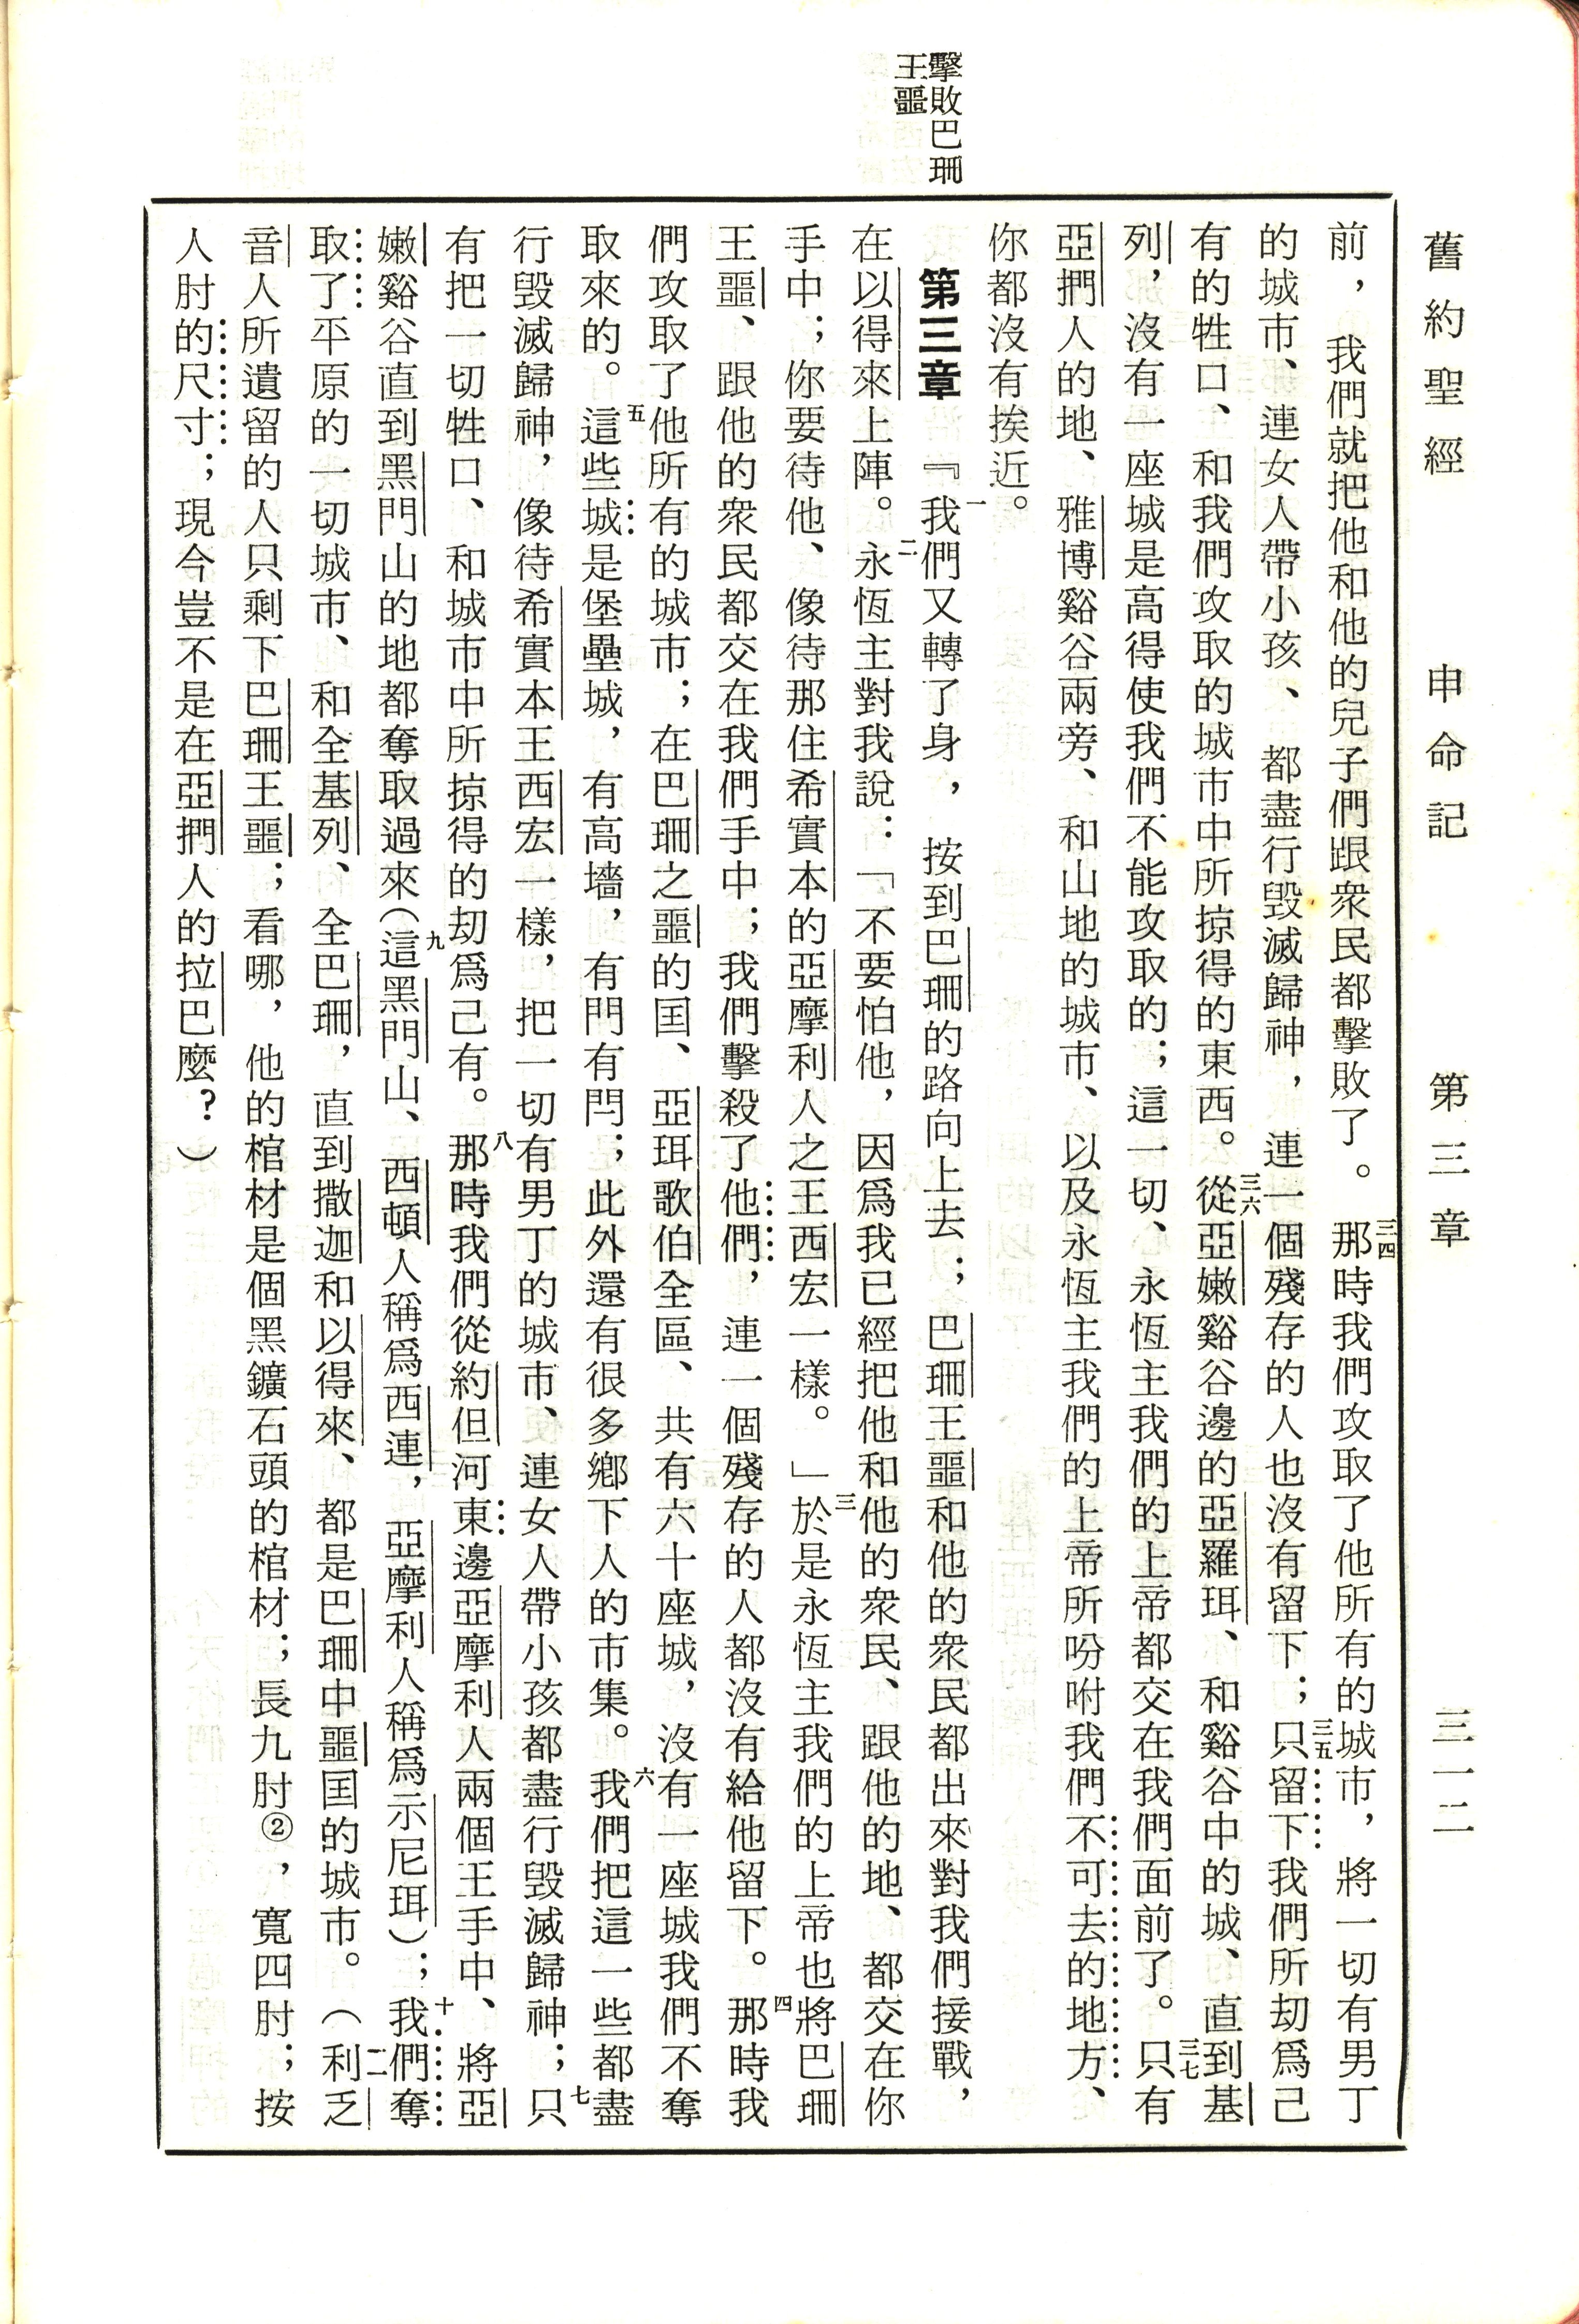 舊約聖經　申命記　第三章　三一二
擊敗巴珊
王噩
前，我們就把他和他的兒子們跟衆民都擊敗了。三四那時我們攻取了他所有的城市，將一切有男丁
的城市、連女人帶小孩、都盡行毀滅歸神，連一個殘存的人也沒有留下；三五只留下我們所刧爲己
有的牲口、和我們攻取的城市中所掠得的東西。三六從亞嫩谿谷邊的亞羅珥、和谿谷中的城、直到基
列，沒有一座城是高得使我們不能攻取的；這一切、永恆主我們的上帝都交在我們面前了。三七只有
亞捫人的地、雅博谿谷兩旁、和山地的城市、以及永恆主我們的上帝所吩咐我們不可去的地方、
你都沒有挨近。
第三章　『一我們又轉了身，按到巴珊的路向上去；巴珊王噩和他的衆民都出來對我們接戰，
在以得來上陣。二永恆主對我說：「不要怕他，因爲我已經把他和他的衆民、跟他的地、都交在你
手中；你要待他、像待那住希實本的亞摩利人之王西宏一樣。」三於是永恆主我們的上帝也將巴珊
王噩、跟他的衆民都交在我們手中；我們擊殺了他們，連一個殘存的人都沒有給他留下。四那時我
們攻取了他所有的城市；在巴珊之噩的国、亞珥歌伯全區、共有六十座城，沒有一座城我們不奪
取來的。五這些城是堡壘城，有高墻，有門有閂；此外還有很多鄉下人的市集。六我們把這一些都盡
行毀滅歸神，像待希實本王西宏一樣，把一切有男丁的城市、連女人帶小孩都盡行毀滅歸神；七只
有把一切牲口、和城市中所掠得的刧爲己有。八那時我們從約但河東邊亞摩利人兩個王手中、將亞
嫩谿谷直到黑門山的地都奪取過來（九這黑門山、西頓人稱爲西連，亞摩利人稱爲示尼珥）；十我們奪
取了平原的一切城市、和全基列、全巴珊，直到撒迦和以得來、都是巴珊中噩国的城市。（十一利乏
音人所遺留的人只剩下巴珊王噩；看哪，他的棺材是個黑鑛石頭的棺材；長九肘②，寬四肘；按
人肘的尺寸；現今豈不是在亞捫人的拉巴麼？）